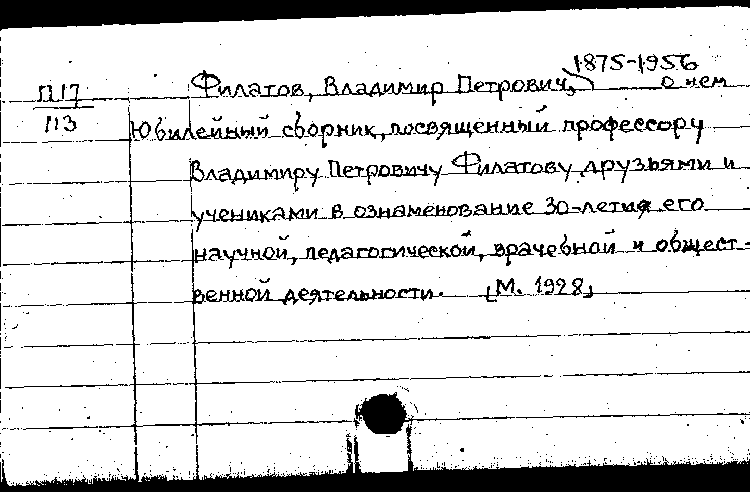 1875-1956
П17 Филатов, Владимир Петрович, о нем
П3 Юбилейный сборник, посвященный профессору
Владимиру Петровичу Филатову друзьями и
учениками в ознаменование 30-летия его
научной, педагогической, врачебной и общест-
венной деятельности. [М. 1928]